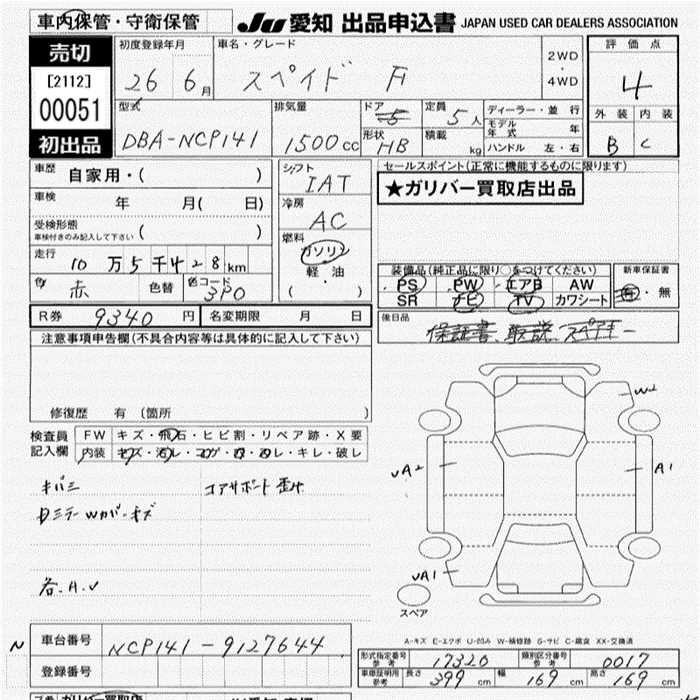 車内保管・守衛保管
JU 愛知 出品申込書 JAPAN USED CAR DEALERS ASSOCIATION
売切
[2112]
00051
初出品
初度登録年月
26 6月
車名・グレード
スペイド F
2WD
・
4WD
評価点
4
外装 内装
B C
型式
DBA-NCP141
排気量
1500cc
ドア
5
形状
HB
定員
5人
積載
kg
ディーラー・並行
モデル年式 年
ハンドル 左・右
車歴
自家用・( )
車検
年 月( 日)
受検形態
車検付きのみ記入して下さい ( )
走行
10万5千428km
色 赤 色替 色コード 3P0
シフト
IAT
冷房
AC
燃料
ガソリン
軽・油
( )
セールスポイント(正常に機能するものに限ります)
★ガリバー買取店出品
装備品(純正品に限り○をつけてください)
PS PW エアB AW
SR ナビ TV カワシート
新車保証書
有・無
R券 9340円 名変期限 月 日
後日品
保証書、取説、スペアキー
注意事項申告欄(不具合内容等は具体的に記入して下さい)
修復歴 有 (箇所 )
検査員記入欄
FW キズ・飛石・ヒビ割・リペア跡・X要
内装 キズ・汚レ・コゲ・穴・スレ・キレ・破レ
キバミ
コアサポート歪ミ
Dミラー Wカバーキズ
各.A.U
W2
UA2
A1
UA1
スペア
A-キズ E-エクボ U-凹み W-補修跡 S-サビ C-腐食 XX-交換済
N
車台番号
NCP141-9127644
登録番号
形式指定番号 参考 17320 類別区分番号 参考 0017
車庫証明用 参考 長さ 399cm 幅 169cm 高さ 169cm
ガリバー買取店